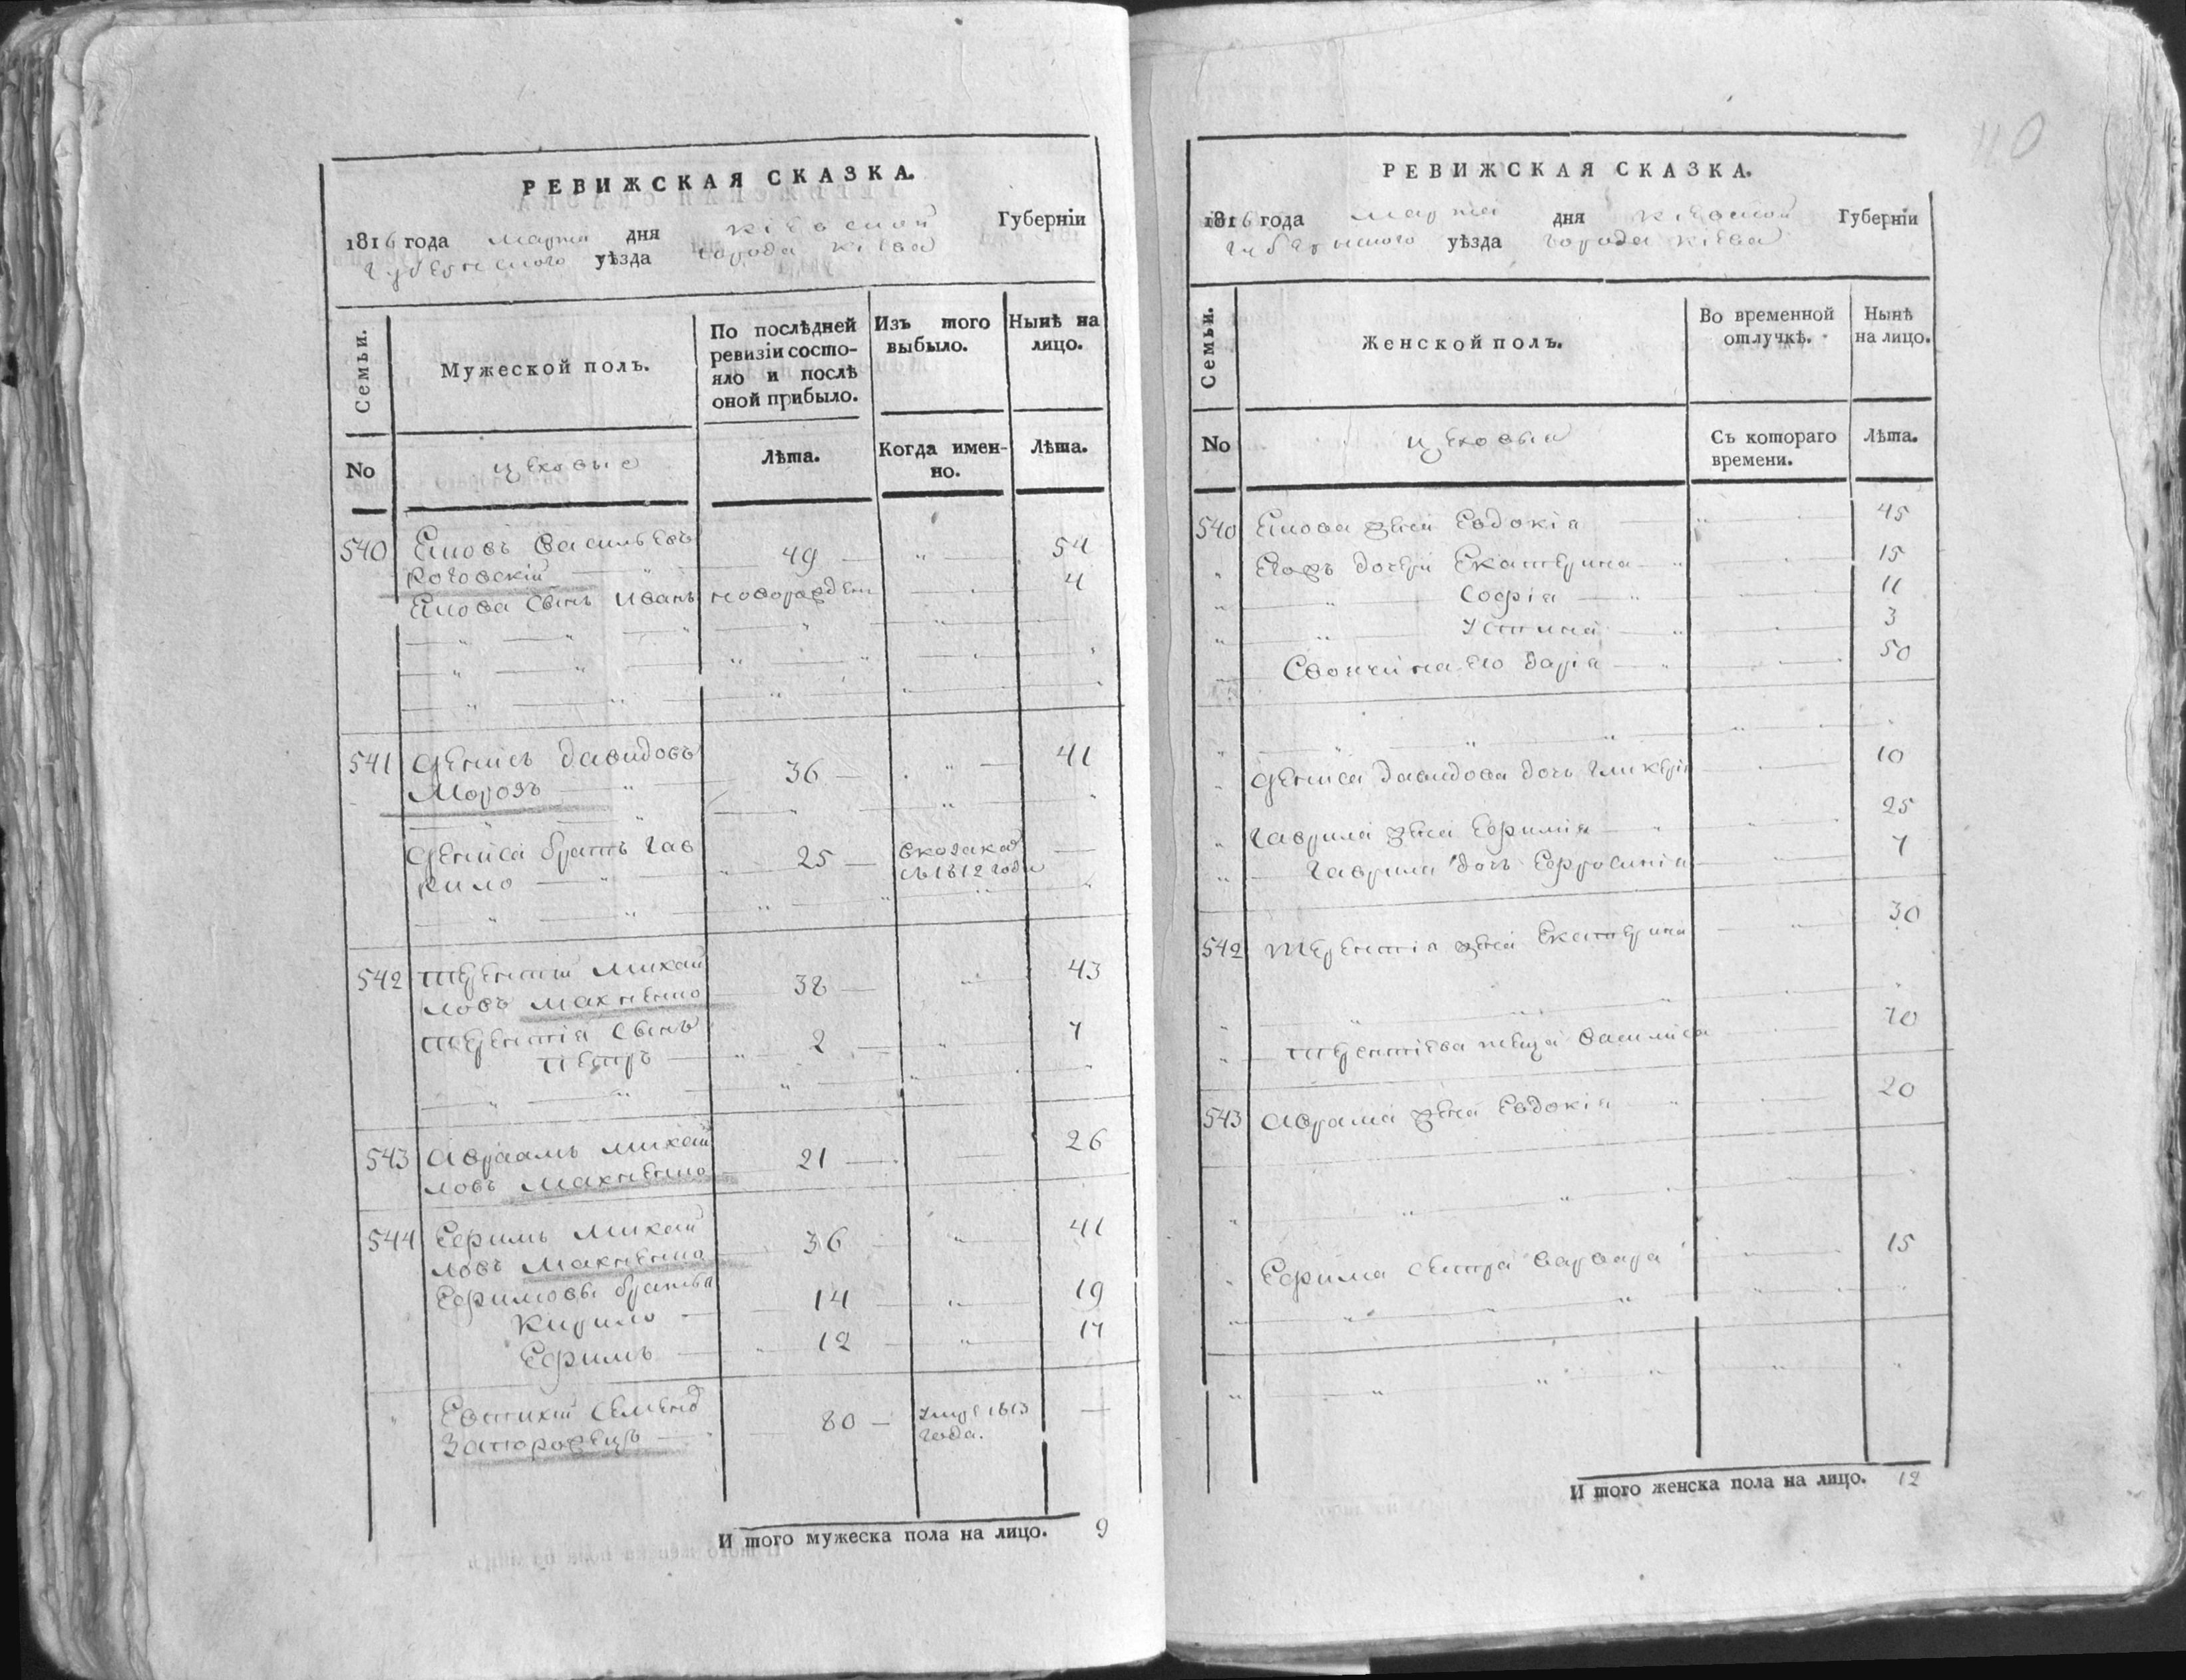 РЕВИЖСКАЯ СКАЗКА.
1816 года марта дня Кіевской Губерніи
Губернского уѣзда города Кіева
Семьи.
Мужеской полъ.
По послѣдней ревизіи состо-
яло и послѣ
оной прибыло.
Изъ того
выбыло.
Нынѣ на
лицо.
No
цеховые
Лѣта.
Когда имен-
но.
Лѣта.
540 Яковъ Васильевъ
Роговскій 49 54
Якова Сынъ Иванъ новорожден 4
541 Денисъ Давидовъ
Морозъ 36 41
Дениса братъ Гав
рило 25 в козака
съ 1812 года
542 Терентій Михай
ловъ Махненко 38 43
Терентія Сынъ
Петръ 2 7
543 Авраамъ Михай
ловъ Махненко 21 26
544 Ефимъ Михай
ловъ Махненко 36 41
Ефимовы братья
Кирило 14 19
Ефимъ 12 17
Евтихій Семенов
Запорожецъ 80 Умре 1813
года.
И того мужеска пола на лицо. 9
110
РЕВИЖСКАЯ СКАЗКА.
1816 года марта дня Кіевской Губерніи
Губернского уѣзда города Кіева
Семьи.
Женской полъ.
Во временной
отлучкѣ.
Нынѣ
на лицо.
No
цеховые
Съ котораго
времени.
Лѣта.
540 Якова жена Евдокія 45
Егожъ дочери Екатерина 15
Софія 11
Устина 3
Своячина его Дарія 50
Дениса Давидова дочь Гликерія 10
Гаврила жена Ефимія 25
Гаврила дочь Ефросинія 7
542 Терентія жена Екатерина 30
Терентіева теща Василиса 70
543 Аврама жена Евдокія 20
Ефима сестра Варвара 15
И того женска пола на лицо. 12